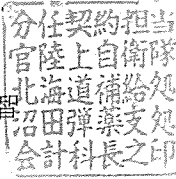 分任契約担当
官陸上自衛隊
北海道補給処
沼田弾薬支処
会計科長之印